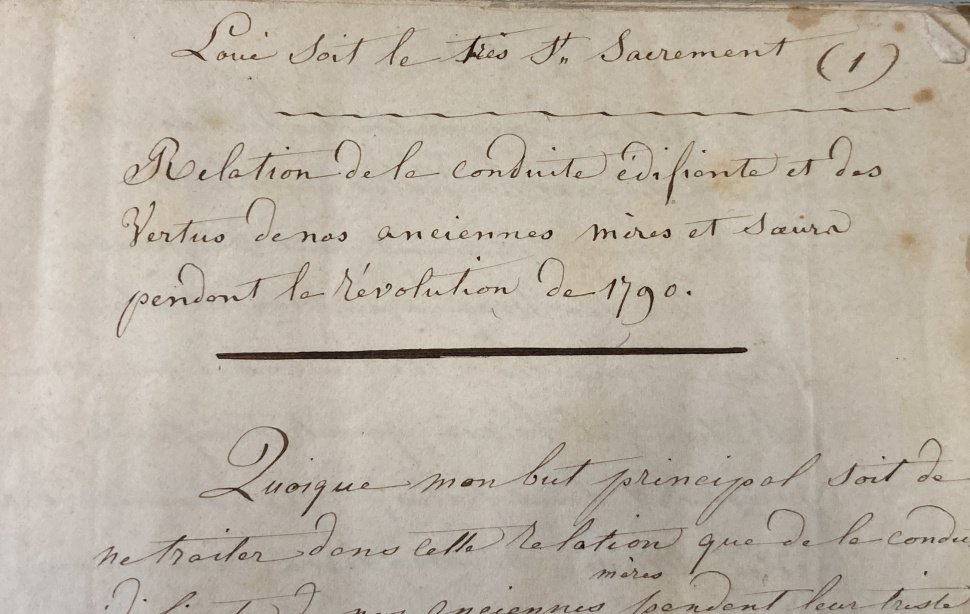 Loué soit le très St. Sacrement (1)
Relation de la conduite édifiante et des
Vertus de nos anciennes mères et sœurs
pendant la révolution de 1790.
Quoique mon but principal soit de
ne traiter dans cette relation que de la condu
mères
de nos anciennes pendant leur triste